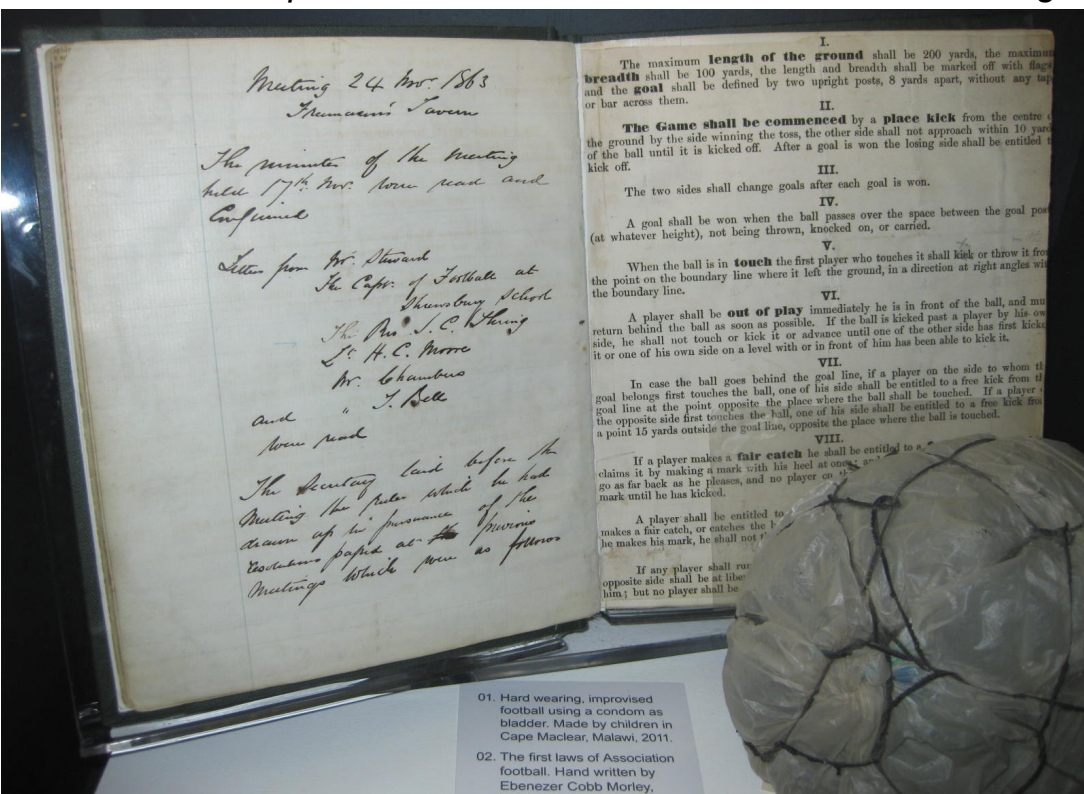 Meeting 24 Nov. 1863
Freemason's Tavern
The minutes of the meeting
held 17th. Nov. were read and
Confirmed
Letters from Mr. Steward
The Capt. of Football at
Shrewsbury School
The Rev. J. C. Thring
Lt. H. C. Moore
Mr. Chambers
and " J. Bell
were read
The Secretary laid before the
Meeting the rules which he had
drawn up in pursuance of the
resolutions passed at previous
Meetings which were as follows
I.
The maximum length of the ground shall be 200 yards, the maximum
breadth shall be 100 yards, the length and breadth shall be marked off with flags
and the goal shall be defined by two upright posts, 8 yards apart, without any tap
or bar across them.
II.
The Game shall be commenced by a place kick from the centre
the ground by the side winning the toss, the other side shall not approach within 10 yard
of the ball until it is kicked off. After a goal is won the losing side shall be entitled t
kick off.
III.
The two sides shall change goals after each goal is won.
IV.
A goal shall be won when the ball passes over the space between the goal post
(at whatever height), not being thrown, knocked on, or carried.
V.
When the ball is in touch the first player who touches it shall kick or throw it from
the point on the boundary line where it left the ground, in a direction at right angles wit
the boundary line.
VI.
A player shall be out of play immediately he is in front of the ball, and mu
return behind the ball as soon as possible. If the ball is kicked past a player by his ow
side, he shall not touch or kick it or advance until one of the other side has first kicke
it or one of his own side on a level with or in front of him has been able to kick it.
VII.
In case the ball goes behind the goal line, if a player on the side to whom th
goal belongs first touches the ball, one of his side shall be entitled to a free kick from th
goal line at the point opposite the place where the ball shall be touched. If a player
the opposite side first touches the ball, one of his side shall be entitled to a free kick from
a point 15 yards outside the goal line, opposite the place where the ball is touched.
VIII.
If a player makes a fair catch he shall be entitled to a
claims it by making a mark with his heel at once; and
go as far back as he pleases, and no player on th
mark until he has kicked.
A player shall be entitled to
makes a fair catch, or catches the b
he makes his mark, he shall not t
If any player shall run
opposite side shall be at libe
him; but no player shall be
01. Hard wearing, improvised
football using a condom as
bladder. Made by children in
Cape Maclear, Malawi, 2011.
02. The first laws of Association
football. Hand written by
Ebenezer Cobb Morley,